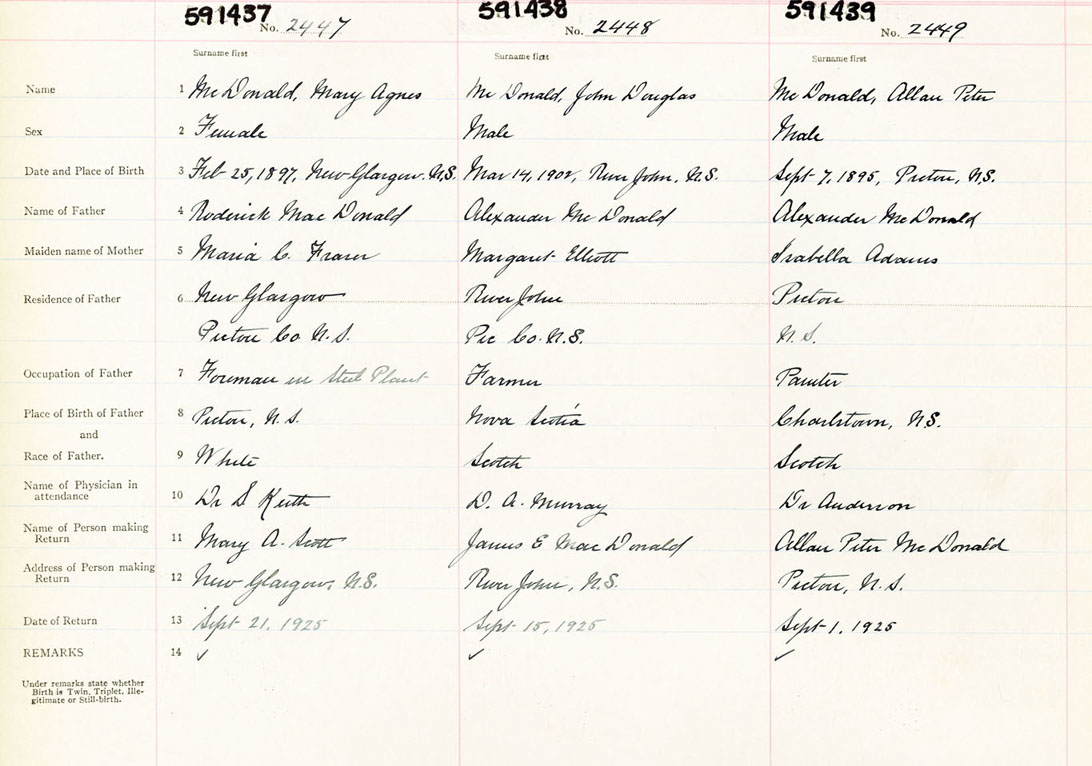 591437 591438 591439
No. 2447 No. 2448 No. 2449
Surname first Surname first Surname first
Name 1 McDonald, Mary Agnes Mc Donald, John Douglas Mc Donald, Allan Peter
Sex 2 Female Male Male
Date and Place of Birth 3 Feb 25, 1897, New Glasgow. N.S. Mar 14, 1902, River John, N.S. Sept 7, 1895, Pictou, N.S.
Name of Father 4 Roderick Mac Donald Alexander Mc Donald Alexander McDonald
Maiden name of Mother 5 Maria C. Fraser Margaret Elliott Isabella Adams
Residence of Father 6 New Glasgow River John Pictou
Pictou Co. N.S. Pic Co. N.S. N.S.
Occupation of Father 7 Foreman in Steel Plant Farmer Painter
Place of Birth of Father 8 Pictou, N.S. Nova Scotia Charlstown, N.S.
and
Race of Father. 9 White Scotch Scotch
Name of Physician in
attendance 10 Dr S Keith D. A. Murray Dr Anderson
Name of Person making
Return 11 Mary A. Scott James E Mac Donald Allan Peter Mc Donald
Address of Person making
Return 12 New Glasgow, N.S. River John, N.S. Pictou, N.S.
Date of Return 13 Sept 21, 1925 Sept 15, 1925 Sept 1, 1925
REMARKS 14 ✓ ✓ ✓
Under remarks state whether
Birth is Twin, Triplet, Ille-
gitimate or Still-birth.